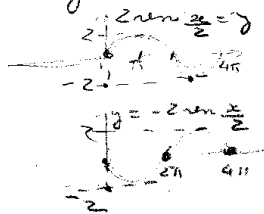 2 sen x/2 = y
2
-2
4π
y = -2 sen x/2
2
2π
4π
-2